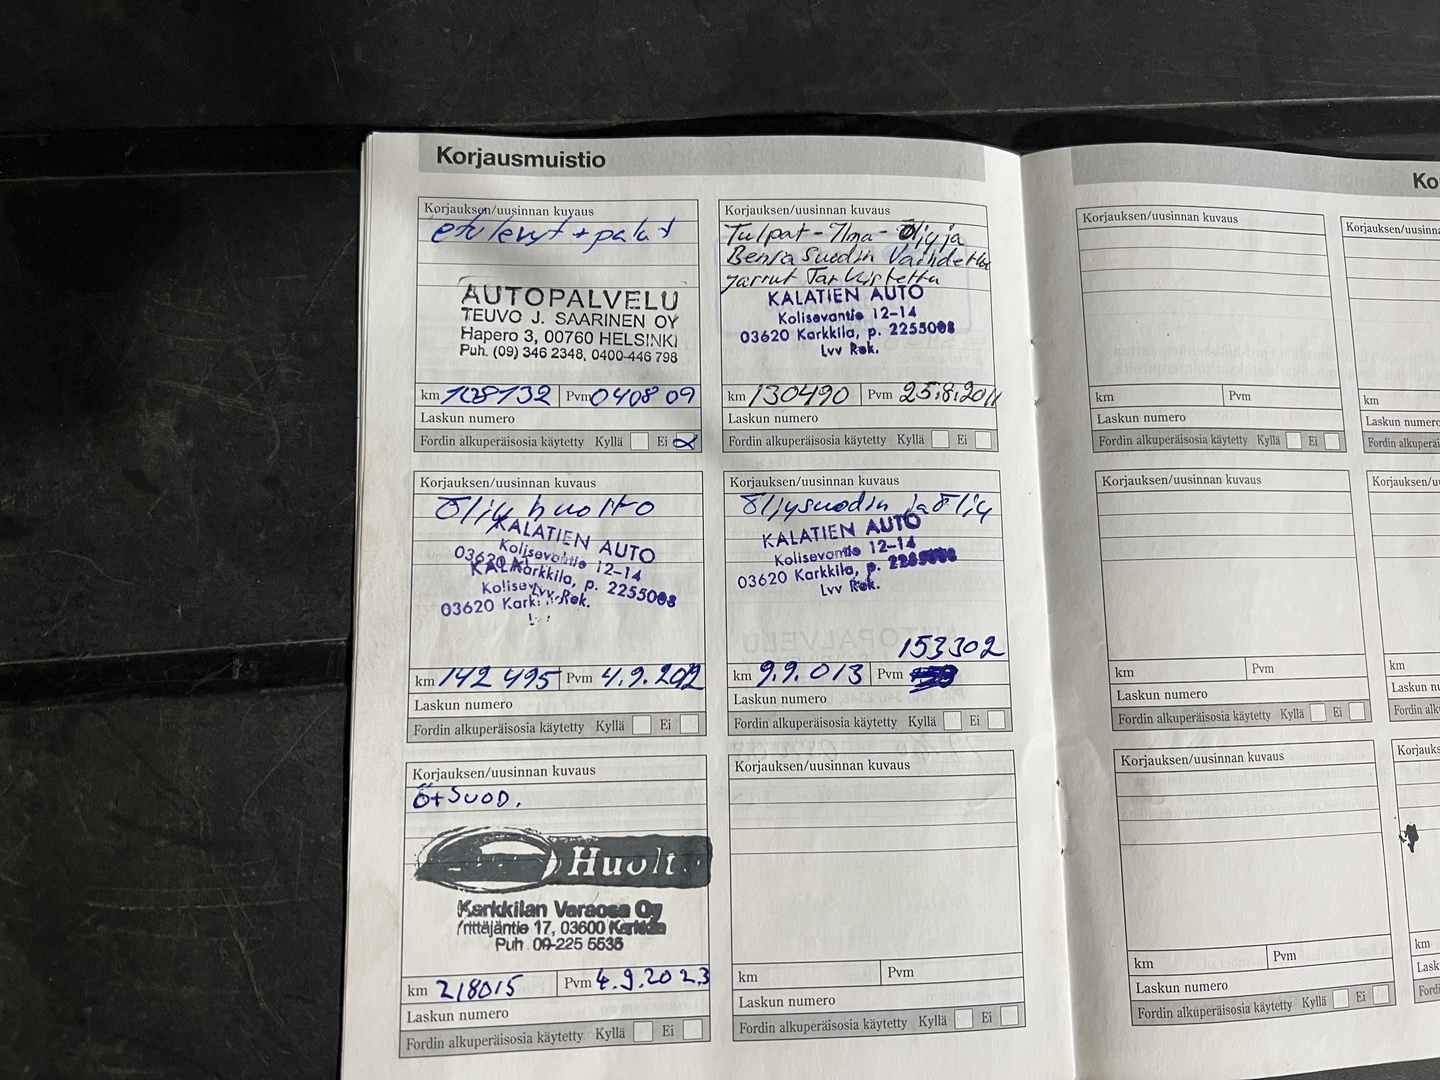 Korjausmuistio
Korjauksen/uusinnan kuvaus
etulevyt + palat
AUTOPALVELU
TEUVO J. SAARINEN OY
Hapero 3, 00760 HELSINKI
Puh. (09) 346 2348, 0400-446 798
km 108132 Pvm 040809
Laskun numero
Fordin alkuperäisosia käytetty Kyllä Ei
Korjauksen/uusinnan kuvaus
Tulpat - Ilma - Öljy ja
Bensa Suodin Vaihdettu
jarrut Tarkistettu
KALATIEN AUTO
Kolisevantie 12-14
03620 Karkkila, p. 2255008
Lvv Rek.
km 130490 Pvm 25.8.2011
Laskun numero
Fordin alkuperäisosia käytetty Kyllä Ei
Korjauksen/uusinnan kuvaus
Öljy huolto
KALATIEN AUTO
Kolisevantie 12-14
03620 Karkkila, p. 2255008
Lvv Rek.
km 142 495 Pvm 4.9.2012
Laskun numero
Fordin alkuperäisosia käytetty Kyllä Ei
Korjauksen/uusinnan kuvaus
Öljysuodin ja Öljy
KALATIEN AUTO
Kolisevantie 12-14
03620 Karkkila, p.
Lvv Rek.
153302
km 9.9.013 Pvm
Laskun numero
Fordin alkuperäisosia käytetty Kyllä Ei
Korjauksen/uusinnan kuvaus
Ö+SUOD.
Huolto
Karkkilan Varaosa Oy
Yrittäjäntie 17, 03600 Karkkila
Puh. 09-225 5535
km 218015 Pvm 4.9.2023
Laskun numero
Fordin alkuperäisosia käytetty Kyllä Ei
Korjauksen/uusinnan kuvaus
km Pvm
Laskun numero
Fordin alkuperäisosia käytetty Kyllä Ei
Ko
Korjauksen/uusinnan kuvaus
km Pvm
Laskun numero
Fordin alkuperäisosia käytetty Kyllä Ei
Korjauksen/uusinna
km
Laskun numero
Fordin alkuperäi
Korjauksen/uusinnan kuvaus
km Pvm
Laskun numero
Fordin alkuperäisosia käytetty Kyllä Ei
Korjauksen/uusin
km
Laskun nu
Fordin alkuper
Korjauksen/uusinnan kuvaus
km Pvm
Laskun numero
Fordin alkuperäisosia käytetty Kyllä Ei
Korjauks
km
Lask
Fordi